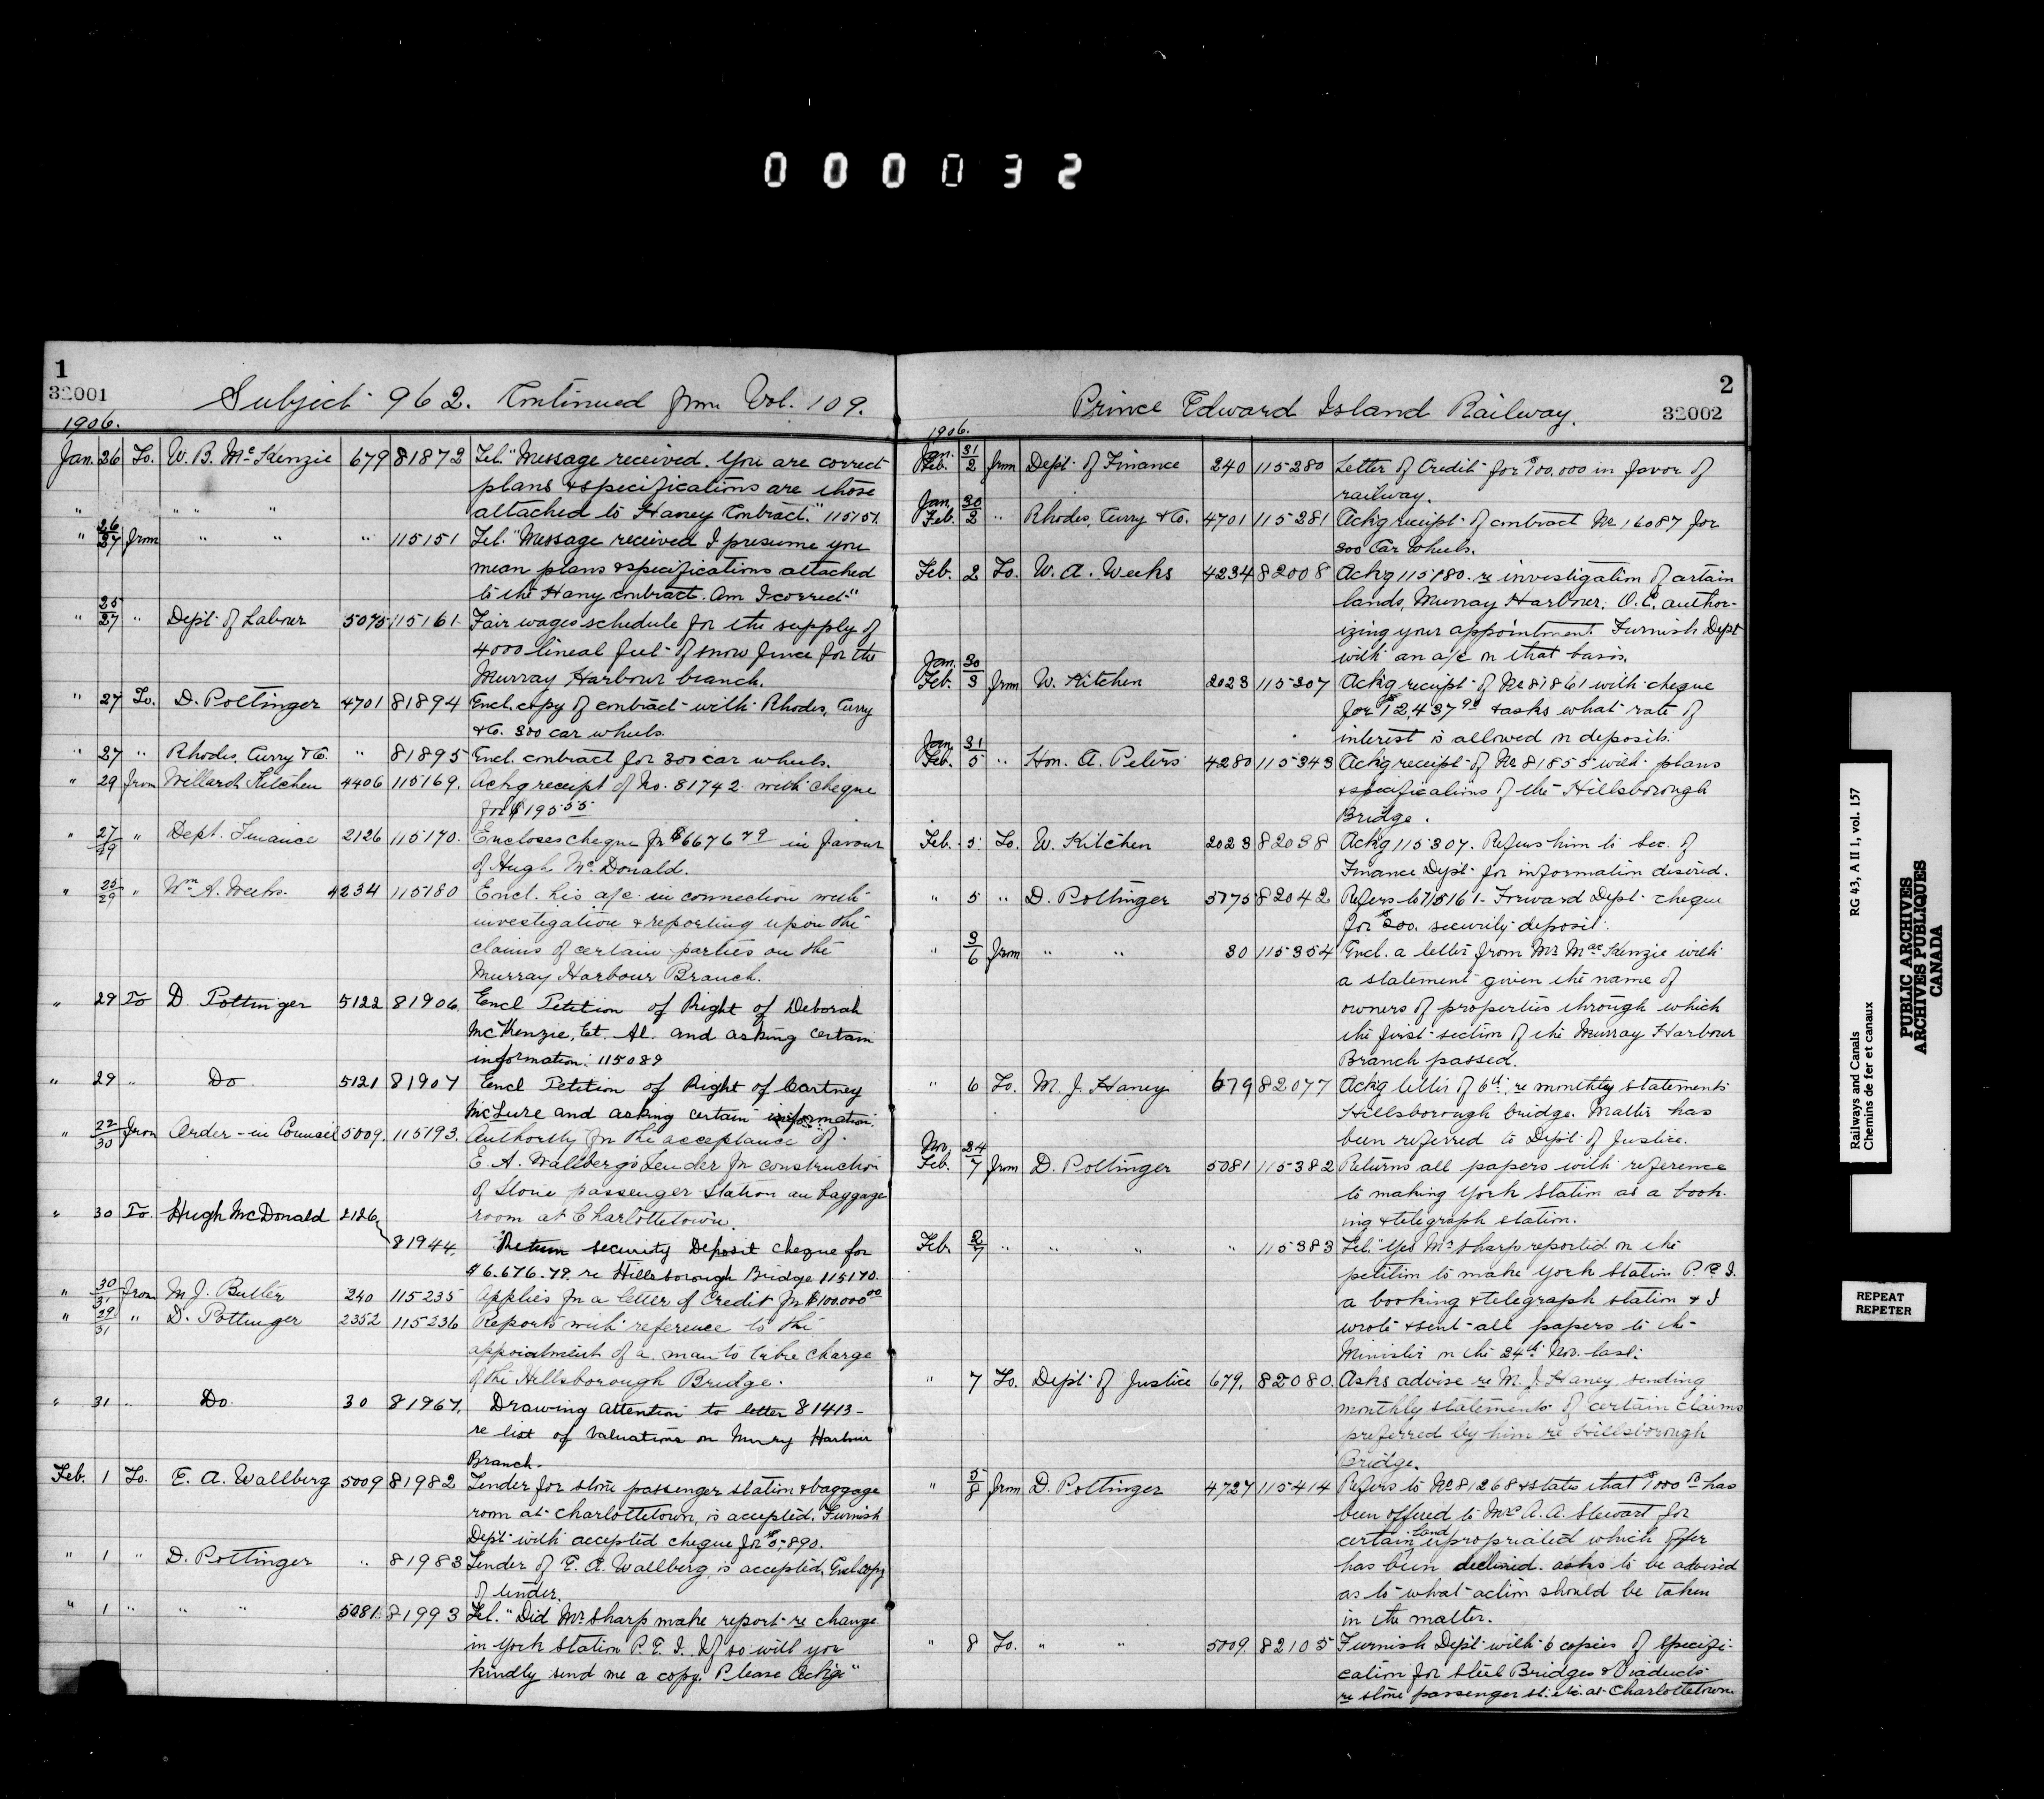 000032
1
32001
Subject 962. Continued from Vol. 109.
1906.
Jan. 26 To. W. B. McKenzie 679 81872 Tel. "Message received. You are correct
plans & specifications are those
" " " " attached to Haney Contract." 115151.
" 26/27 from " " " 115151 Tel. "Message received I presume you
mean plans & specifications attached
to the Hany contract. Am I correct"
" 25/27 " Dept. of Labour 5075 115161 Fair wages schedule for the supply of
4000 lineal feet of snow fence for the
Murray Harbour branch.
" 27 To. D. Pottinger 4701 81894 Encl. copy of contract with Rhodes, Curry
& Co. 300 car wheels.
" 27 " Rhodes, Curry & Co. " 81895 Encl. contract for 300 car wheels.
" 29 from Willard Kitchen 4406 115169. Ackg receipt of No. 81742 with cheque
for $195.55
" 27/29 " Dept. Finance 2126 115170. Encloses cheque for $6676 79 in favour
of Hugh McDonald.
" 25/29 " Wm A. Weeks. 4234 115180 Encl. his a/c in connection with
investigation & reporting upon the
claims of certain parties on the
Murray Harbour Branch.
" 29 To D. Pottinger 5122 81906 Encl Petition of Right of Deborah
McKenzie, Et. Al. and asking certain
information. 115089
" 29 " Do 5121 81907 Encl Petition of Right of Cartney
McLure and asking certain information.
" 22/30 from Order-in Council 5009. 115193. Authority for the acceptance of
E. A. Wallberg's Tender for construction
of Stone passenger Station an baggage
room at Charlottetown.
" 30 To. Hugh McDonald 2126
81944. Return security Deposit cheque for
$6.676.79. re Hillsborough Bridge 115170.
" 30/31 From M J. Butler 240 115235 Applies for a letter of Credit for $100.000 00
" 29/31 " D. Pottinger 2352 115236 Reports with reference to the
appointment of a man to take charge
of the Hillsborough Bridge.
" 31 " Do. 30 81967. Drawing attention to letter 81413-
re list of valuations on Murry Harbour
Branch.
Feb. 1 To. E. A. Wallberg 5009 81982 Tender for stone passenger station & baggage
room at Charlottetown, is accepted. Furnish
Dept with accepted cheque for $5890.
" 1 " D. Pottinger " 81983 Tender of E. A. Wallberg, is accepted, Encl copy
of tender.
" 1 " " " 5081 81993 Tel. "Did Mr Sharp make report re change
in York Station P. E. I. If so will you
kindly send me a copy. Please Ackge"
2
32002
Prince Edward Island Railway.
1906.
Jan. 31 / Feb. 2 from Dept. of Finance 240 115280 Letter of Credit for $100.000 in favor of
railway.
Jan. 30 / Feb. 2 " Rhodes, Curry & Co. 4701 115281 Ackg receipt of contract No 16087 for
300 Car Wheels.
Feb. 2 To. W. A. Weeks 4234 82008 Ackg 115180. re investigation of certain
lands, Murray Harbour. O.C. author-
izing your appointment. Furnish Dept
with an a/c on that basis.
Jan. 30 / Feb. 3 from W. Kitchen 2023 115307 Ackg receipt of No 81861 with cheque
for $12,437 90 & asks what rate of
interest is allowed on deposits.
Jan. 31 / Feb. 5 " Hon. A. Peters 4280 115343 Ackg receipt of No 81855 with plans
& specifications of the Hillsborough
Bridge.
Feb. 5 To. W. Kitchen 2023 82038 Ackg 115307. Refers him to Sec. of
Finance Dept. for information desired.
" 5 " D. Pottinger 5175 82042 Refers to 115161- Forward Dept. cheque
for $200. security deposit.
" 3/6 from " " 30 115354 Encl. a letter from Mr MacKenzie with
a statement given the name of
owners of properties through which
the first section of the Murray Harbour
Branch passed.
" 6 To. M. J. Haney 679 82077 Ackg letter of 6th re monthly statements
Hillsborough bridge. Matter has
been referred to Dept. of Justice.
Nov. 24 / Feb. 7 from D. Pottinger 5081 115382 Returns all papers with reference
to making York Station as a book-
ing & telegraph station.
Feb. 2/7 " " " " 115383 Tel. "Yes Mr Sharp reported on the
petition to make York Station P. E. I.
a booking & telegraph station & I
wrote & sent all papers to the
Minister on the 24th Nov. last.
" 7 To. Dept. of Justice 679. 82080. Asks advise re M. J. Haney sending
monthly statements of certain claims
preferred by him re Hillsborough
Bridge.
" 5/8 from D. Pottinger 4727 115414 Refers to No 81268 & states that $1000 has
been offered to Mrs A. A. Stewart for
certain land expropriated which offer
has been declined. asks to be advised
as to what action should be taken
in the matter.
" 8 To. " " 5009. 82105 Furnish Dept. with 6 copies of specifi-
cation for Steel Bridges & Viaducts
re stone passenger st. etc. at Charlottetown
Railways and Canals RG 43, A II 1, vol. 157
Chemins de fer et canaux
PUBLIC ARCHIVES
ARCHIVES PUBLIQUES
CANADA
REPEAT
REPETER